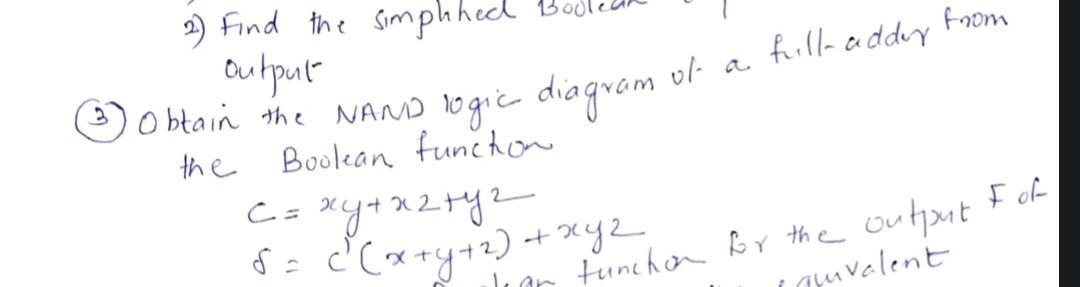 2) Find the simplified
output
3 Obtain the NAND logic diagram of a full-adder from
the Boolean function
C = xy+xz+yz
S = C'(x+y+z) + xyz
function for the output F of